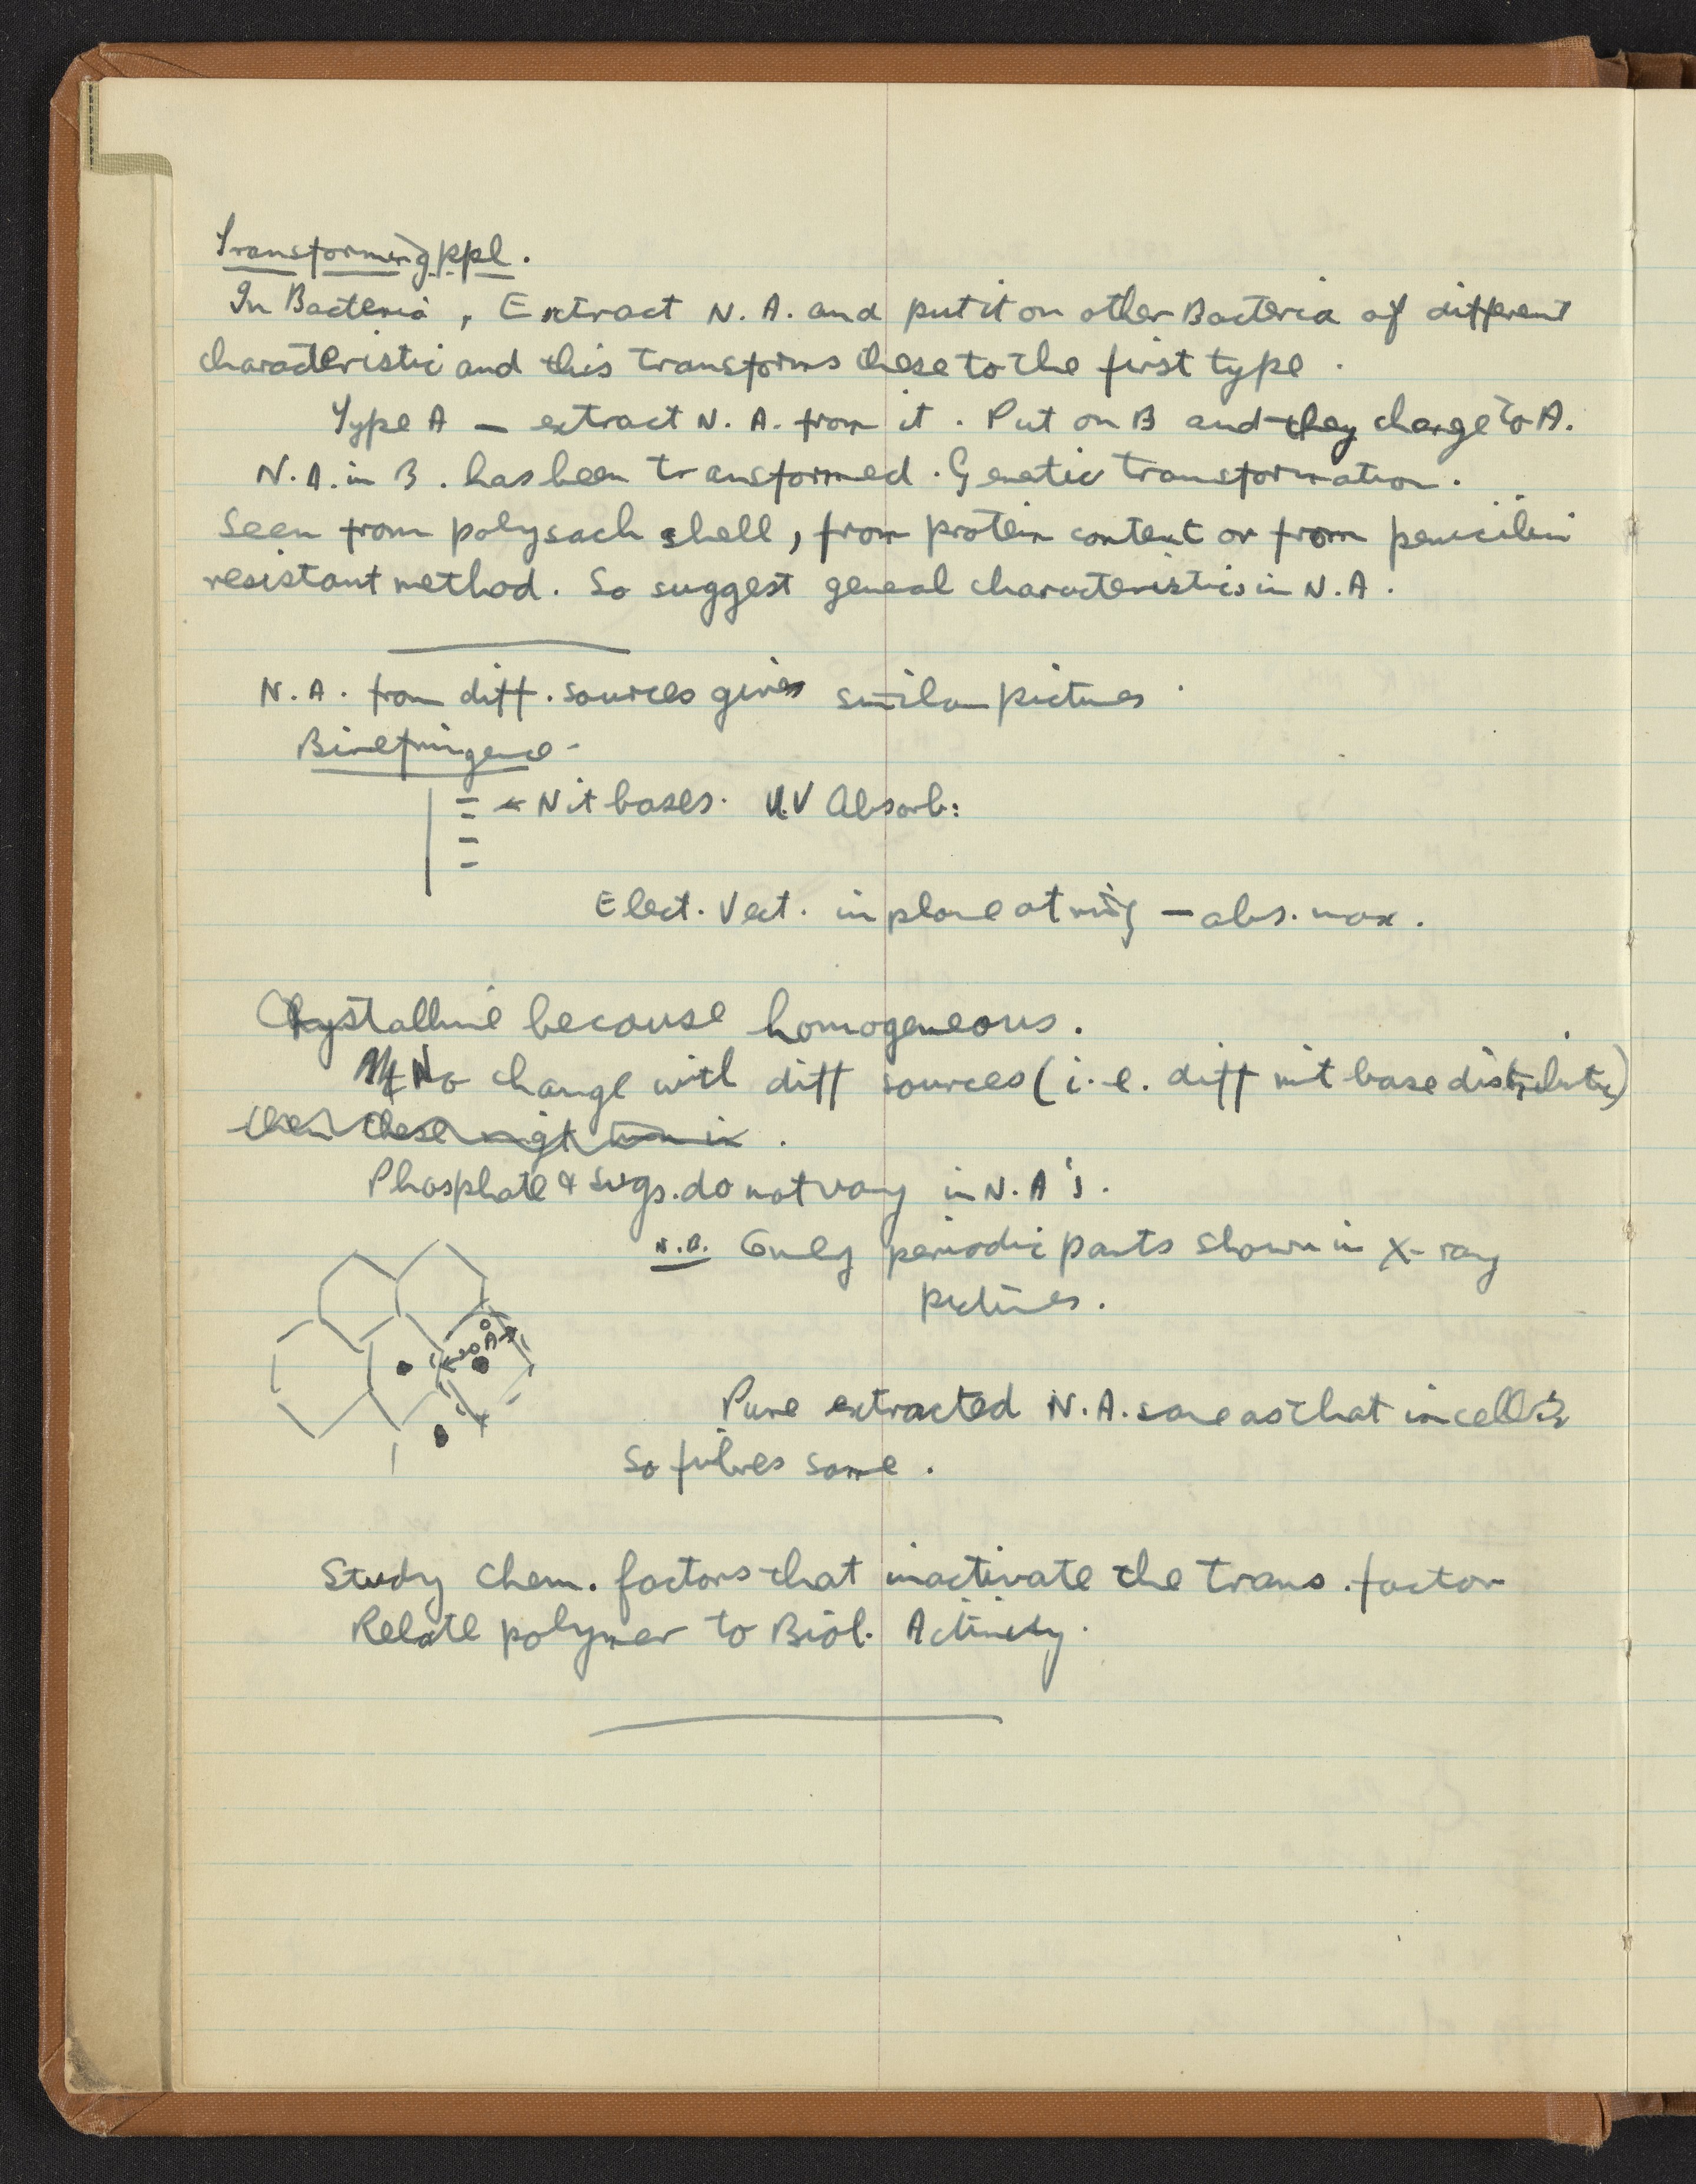 Transforming ppl.
In Bacteria, Extract N. A. and put it on other Bacteria of different
characteristic and this transforms these to the first type.
Type A – extract N. A. from it. Put on B and they change to A.
N. A. in B. has been transformed. Genetic transformation.
Seen from polysach shell, from protein content or from penicilin
resistant method. So suggest geneal characteristics in N. A.
N. A. from diff. sources gives similar pictures
Birefringence -
← Nit bases. U.V Absorb:
Elect. Vect. in plane of ring – abs. max.
Crystalline because homogeneous.
No change with diff sources (i.e. diff nit base distribution)
then these might
Phosphate & sugs. do not vary in N. A's.
N.B. Only periodic parts shown in X-ray
pictures.
←20Å→
Pure extracted N. A. same as that in cells
So fibres same.
Study chem. factors that inactivate the trans. factor
Relate polymer to Biol. Activity.